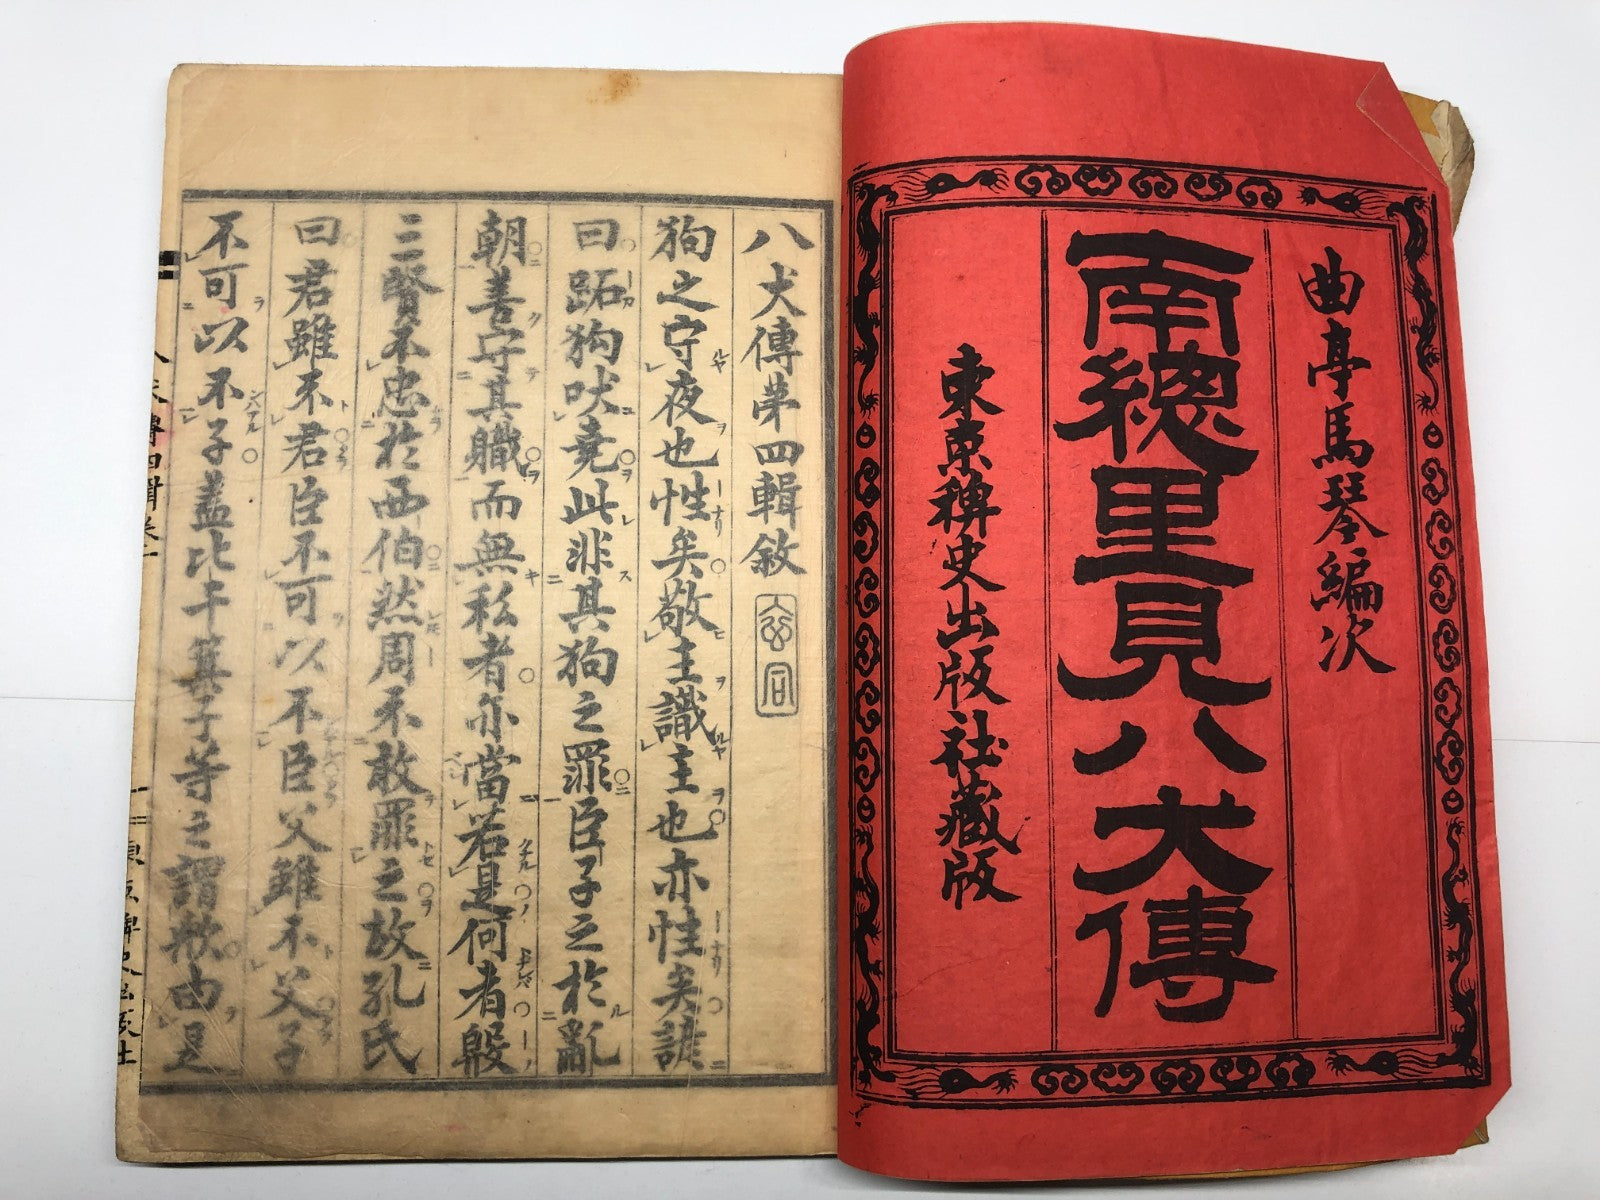 曲亭馬琴編次
南總里見八犬傳
東京稗史出版社藏版
八犬傳第四輯敘
狗之守夜也性矣敬主識主也亦性矣諺
曰跖狗吠堯此非其狗之罪臣子之於亂
朝善守其職而無私者亦當若是何者殷
三賢不忠於西伯然周不敢罪之故孔氏
曰君雖不君臣不可以不臣父雖不父子
不可以不子盖比干箕子等之謂歟由是